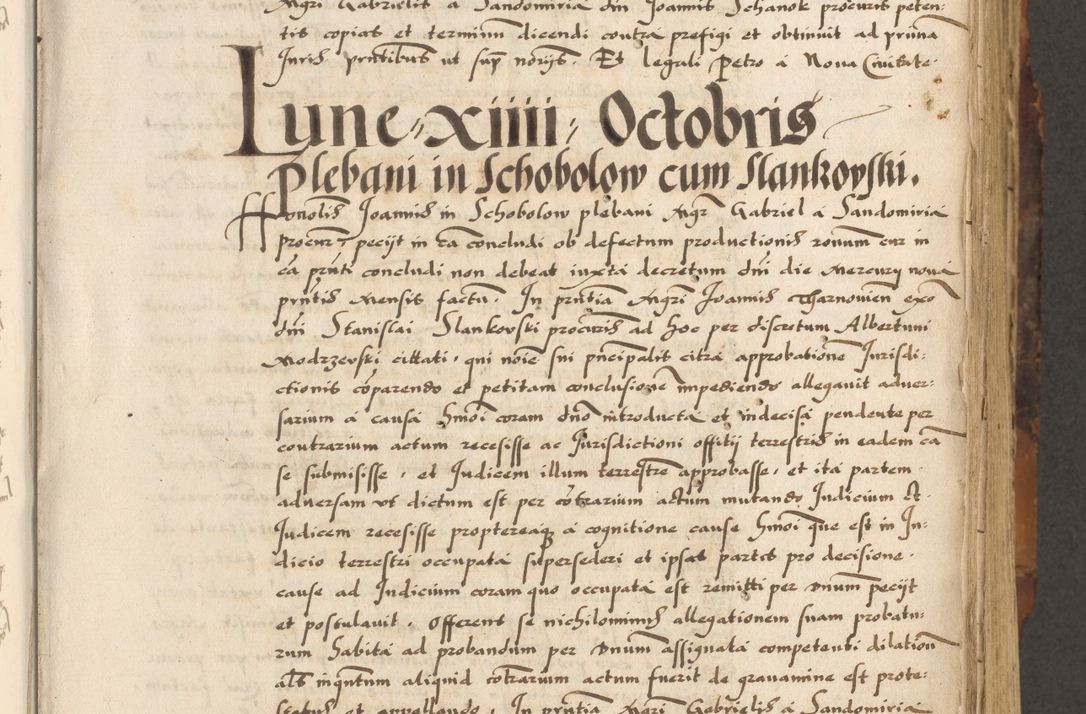 Mgri Gabrielis a Sandomiria dni Joannis Schanok procuris peten-
tis copias et terminum dicendi contra prefigi et obtinuit ad prima
Juris prntibus ut supra norijs. Et legali Petro a Nova Civitate.
Lune xiiii Octobris
Plebani in Schobolow cum Slankovski.
Honolis Joannis in Schobolow plebani Mgr Gabriel a Sandomiria
procur, pecijt in ca concludi ob defectum productionis ronum cur in
ca prnti concludi non debeat iuxta decretum dni die Mercurij nona
prntis Mensis factu. In prntia Mgri Joannis Tharnovien
dni Stanislai Slankovski procuris ad hoc per discretum Albertum
Modrzevski cittati, qui noie sui principalis citra approbatione Jurisdi-
ctionis coparendo et petitam conclusione impediendo allegavit adver-
sarium a causa hmoi coram dno introducta et indecisa pendente per
contrarium actum recesisse ac Jurisdictioni offitij terrestris in eadem ca
se submisisse, et Judicem illum terrestre approbasse, et ita partem
adversam ut dictum est per cotrarium actum mutando Judicium et
Judicem recesisse proptereaq a cognitione cause hmoi que est in Ju-
dicio terrestri occupata supersederi et ipsas partes pro decisione
cause ad Judicium coram quo occupata est remitti per Dnum pecijt
et postulavit. Offerens se nichilominus allegationem suam probatu-
rum habita ad probandum per Dnum assignata competenti dilation
als inquntum aliquid cotrarium actum fuerit de gravamine est prote-
status et appellando. In prntia Mgri Gabrielis a Sandomiria